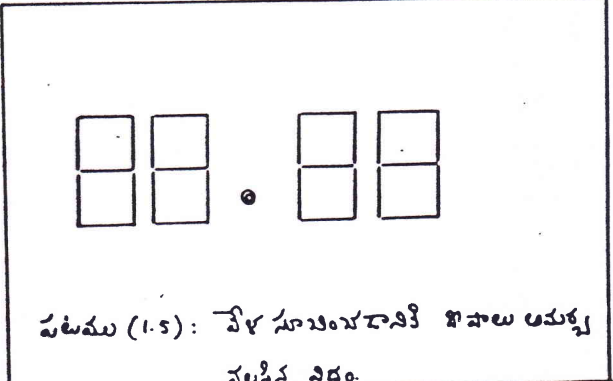 పటము (1.5): వేళ సూచించడానికి దీపాలు అమర్చ
వలసిన విధం.